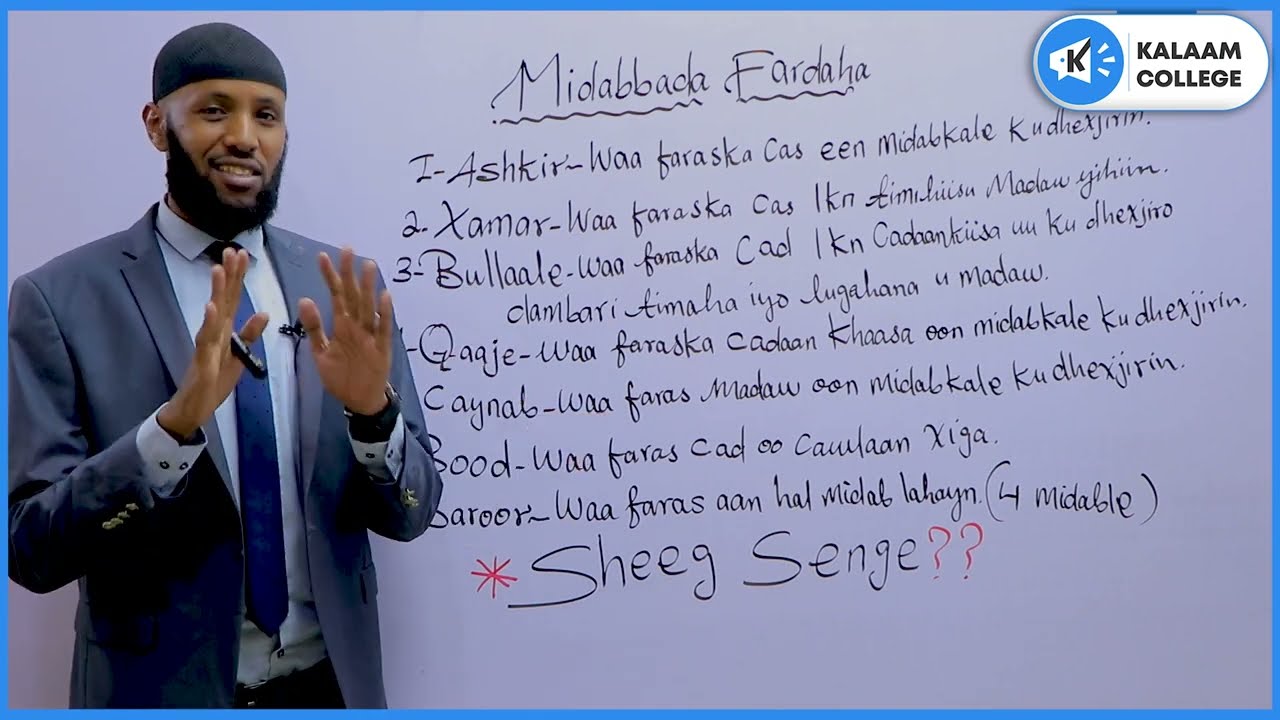 KALAAM
COLLEGE
Midabbada Fardaha
1-Ashkir-Waa faraska Cas een midabkale Kudhexjirin.
2-Xamar-Waa faraska cas lkn timihiisu Madaw yihiin.
3-Bullaale-Waa faraska Cad lkn Cadaankiisa uu ku dhexjiro
dambari timaha iyo lugahana u madaw.
-Qaaje-Waa faraska cadaan Khaasa oon midabkale Kudhexjirin.
Caynab-Waa faras Madaw oon midabkale Kudhexjirin.
Bood-Waa faras cad oo cawlaan xiga.
Baroor-Waa faras aan hal midab lahayn. (4 midable)
* Sheeg Senge??